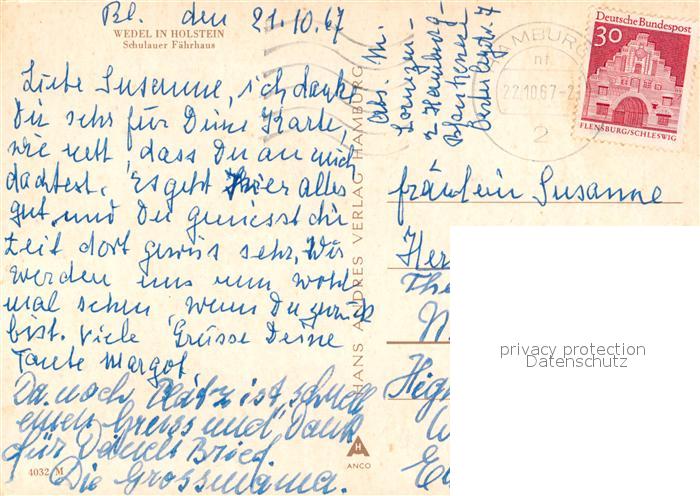 Bl. den 21.10.67
WEDEL IN HOLSTEIN
Schulauer Fährhaus
Liebe Susanne, ich danke
Dir sehr für Deine Karte,
wie nett, dass Du an mich
dachtest. Es geht hier alles
gut und Du geniesst die
Zeit dort gewiss sehr. Wir
werden uns nun wohl
mal sehen, wenn Du zurück
bist. Viele Grüsse Deine
Tante Margot
Da noch Platz ist, schnell
einen Gruss und Dank
für Deinen Brief.
Die Grossmama.
4032 M
HANS ANDRES VERLAG HAMBURG
ANCO
Abs. M.
Lorenzen
2 Hamburg-
Blankenese
HAMBURG
22.10.67-2
2
Deutsche Bundespost
30
FLENSBURG/SCHLESWIG
Fräulein Susanne
Her
The
privacy protection
Datenschutz
High